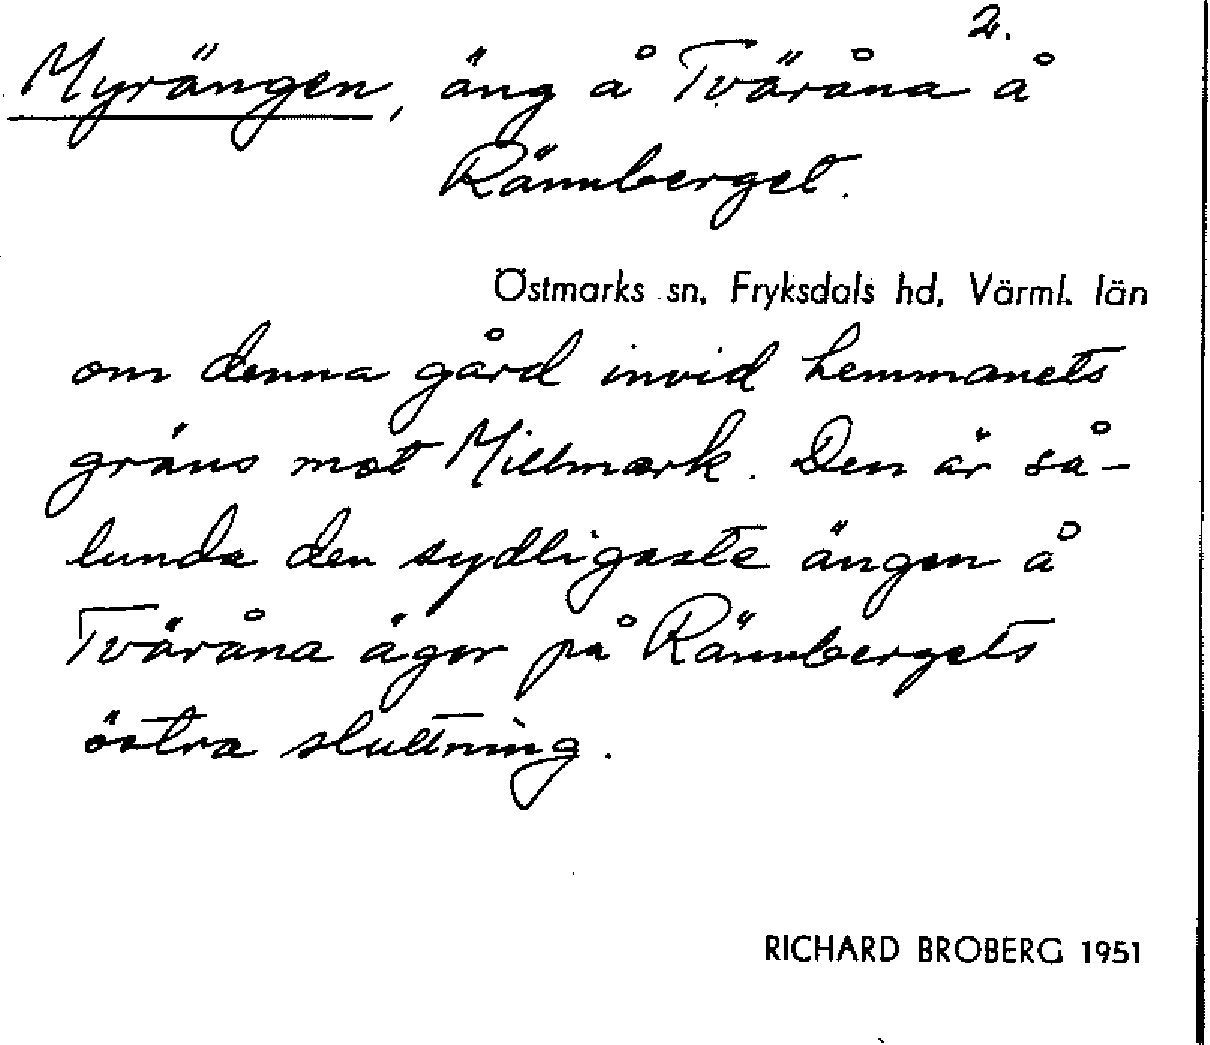 2.
Myrängen, äng å Tväråna å
Rännberget.
Östmarks sn, Fryksdals hd, Värml. län
om denna gård invid hemmanets
gräns mot Millmark. Den är så-
lunda den sydligaste ängen å
Tväråna ägor på Rännbergets
östra sluttning.
RICHARD BROBERG 1951